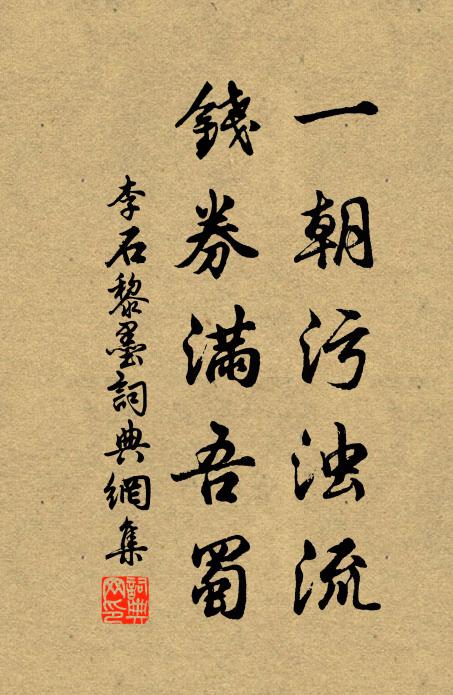 一朝污浊流
錢券滿吾蜀
李石黎墨詞典網集
詞典
网印